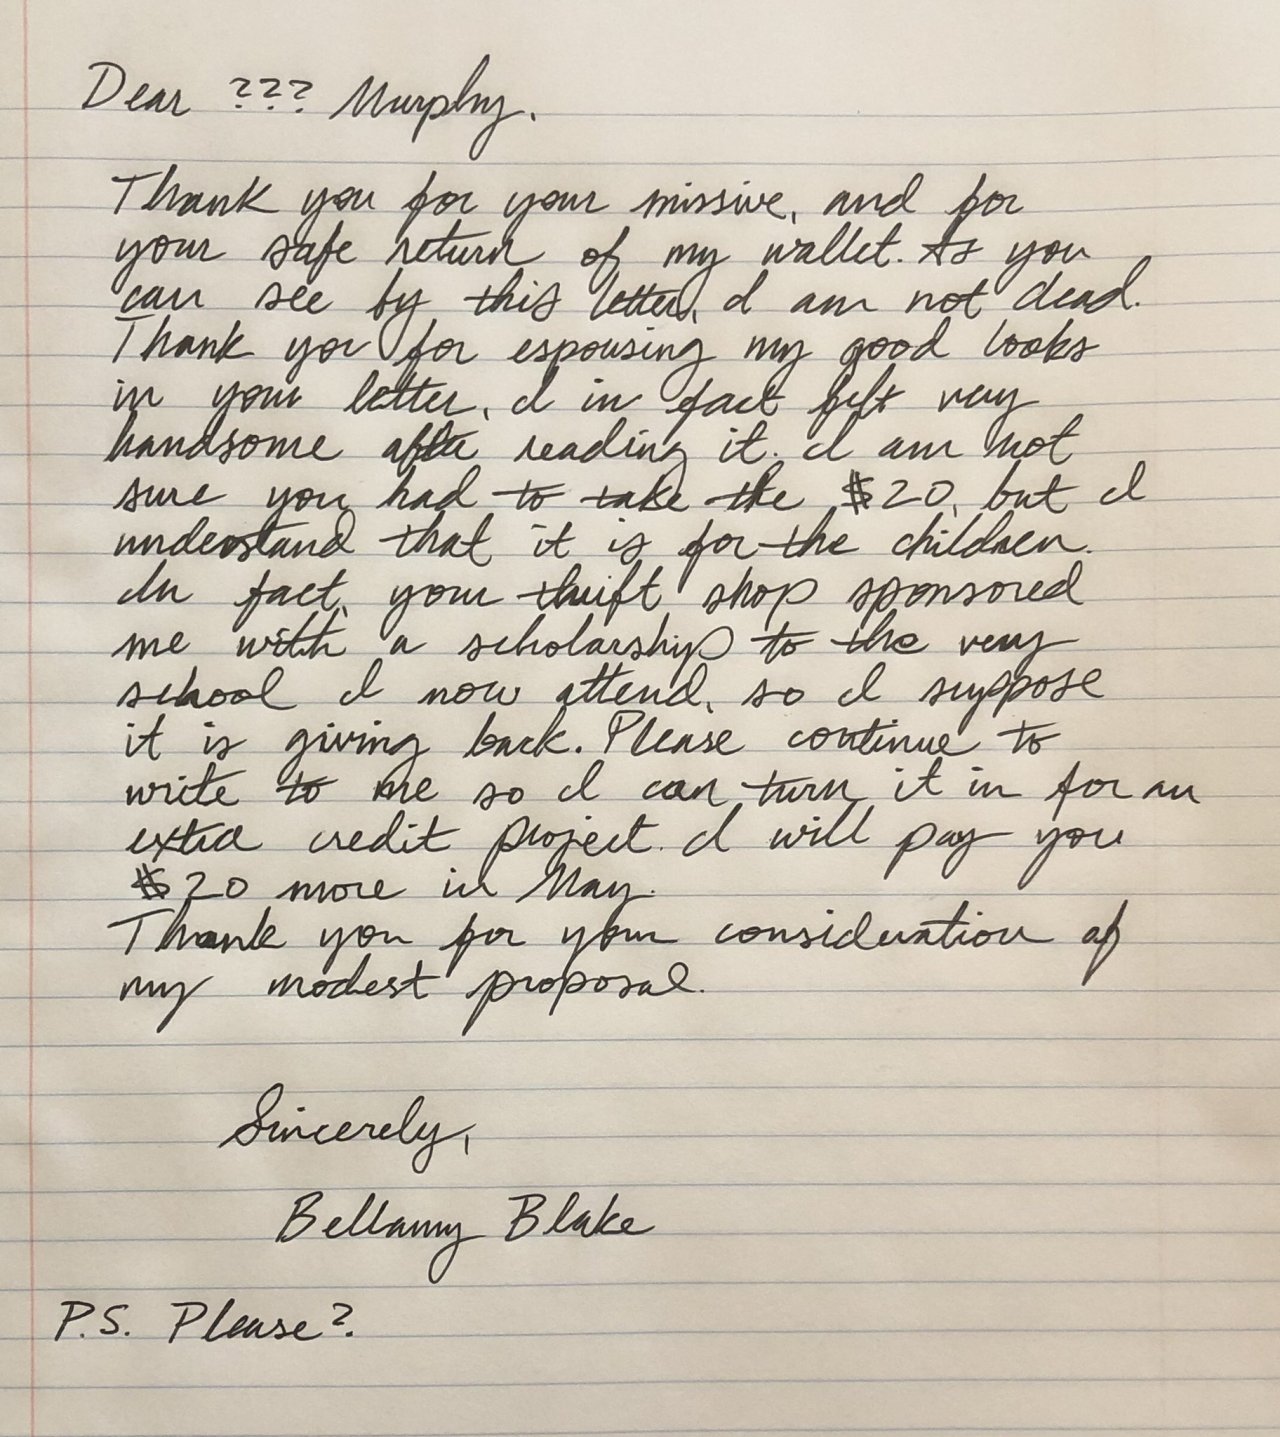 Dear ??? Murphy,
Thank you for your missive, and for
your safe return of my wallet. As you
can see by this letter, I am not dead.
Thank you for espousing my good looks
in your letter, I in fact felt very
handsome after reading it. I am not
sure you had to take the $20, but I
understand that it is for the children.
In fact, your thrift shop sponsored
me with a scholarship to the very
school I now attend, so I suppose
it is giving back. Please continue to
write to me so I can turn it in for an
extra credit project. I will pay you
$20 more in May.
Thank you for your consideration of
my modest proposal.
Sincerely,
Bellamy Blake
P.S. Please?.